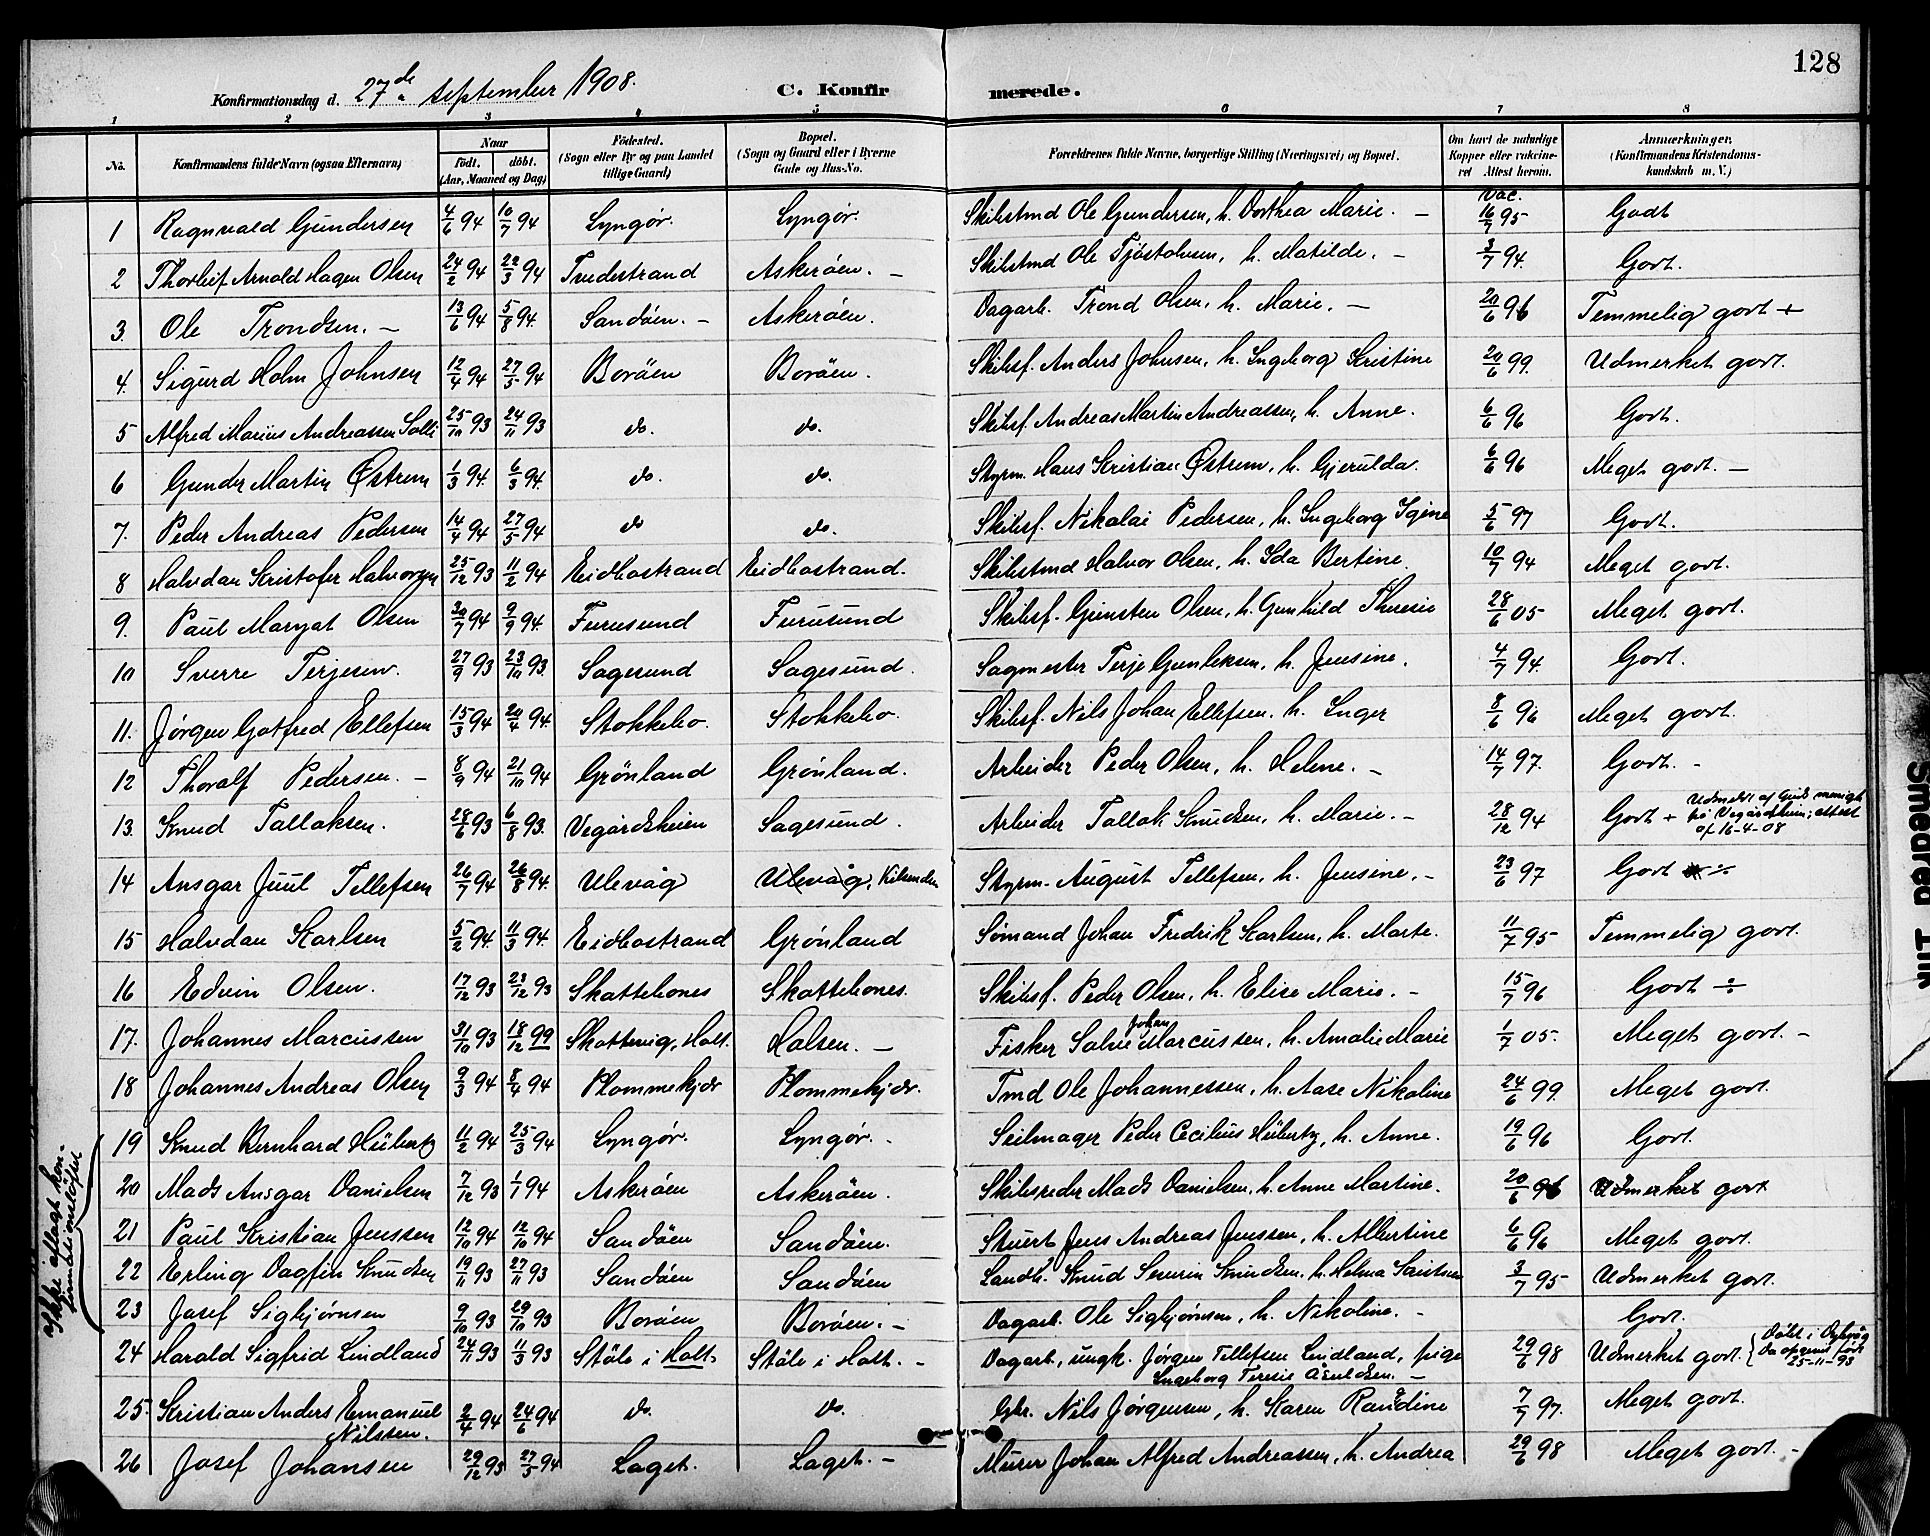 128
Konfirmationsdag d. 27de september 1908. C. Konfirmerede.
1 2 3 4 5 6 7 8
No. Konfirmandens fulde Navn (ogsaa Efternavn) Naar født. døbt. (Aar, Maaned og Dag) Födested. (Sogn eller By og paa Landet tillige Gaard) Bopæl. (Sogn og Gaard eller i Byerne Gade og Hus-No. Forældrenes fulde Navne, borgerlige Stilling (Næringsvei) og Bopæl. Om havt de naturlige Kopper eller vakcineret Attest herom. Anmærkninger. (Konfirmandens Kristendomskundskab m. V.)
1 Ragnvald Gundersen 4/6 94 10/7 94 Lyngør. Lyngør. Skibstmd Ole Gundersen, h. Dorthea Marie. – Vac. 16/7 95 Godt
2 Thorleif Arnold Hagen Olsen 24/2 94 22/3 94 Tvedestrand Askerøen. – Skibstmd Ole Tjøstolvsen, h. Matilde. – 3/7 94. Godt.
3. Ole Trondsen. – 13/6 94 5/8 94. Sandøen. – Askerøen. Dagarb. Trond Olsen, h. Marie. – 20/6 96 Temmelig godt +
4. Sigurd Holm Johnsen 12/4 94 27/5 94 Borøen Borøen. Skibsf. Anders Johnsen, h. Ingeborg Kristine 20/6 99. Udmerket godt.
5 Alfred Marius Andreassen Solli 25/10 93 24/11 93 do. do. Skibsf. Andreas Martin Andreassen, h. Anne. 6/6 96 Godt.
6 Gunder Martin Østrem 1/3 94. 6/5 94. do. do. Styrm. Hans Kristian Østrem, h. Gjerulda. 6/6 96 Meget godt. –
7. Peder Andreas Pedersen 14/4 94 27/5 94 do do. Skibsf. Nikolai Pedersen, h. Ingeborg Igine 5/6 97 Godt.
8 Halvdan Kristofer Halvorsen 25/12 93 11/2 94 Eidbostrand Eidbostrand. Skibstmd Halvor Olsen, h. Ida Bertine. 10/7 94 Meget godt.
9. Paul Margat Olsen 30/7 94 9/9 94. Furusund Furusund Skibsf. Gunsten Olsen, h. Gunhild Theresie 28/6 05 Meget godt.
10 Sverre Terjesen. 27/9 93 23/10 93. Sagesund Sagesund. Sagmester Terje Gunleksen, h. Jensine. 4/7 94. Godt.
11. Jørgen Gotfred Ellefsen 15/3 94 20/4 94. Stokkebo Stokkebo. Skibsf. Nils Johan Ellefsen. h. Inger 8/6 96 Meget godt.
12 Thoralf Pedersen. – 8/9 94 21/10 94 Grönland Grönland. Arbeider Peder Olsen, h. Helene. – 14/7 97. Godt. –
13. Knud Tallaksen. 28/6 93 6/8 93. Vegårdsheien Sagesund. Arbeider Tallak Knudsen, h. Marie. – 28/12 94 Godt + Udmeldt af menigh på Vegårdsheien; attest af 16-4-08
14 Ansgar Juul Tellefsen 26/7 94 26/8 94. Ulevåg Ulevåg, Kilsund Styrm. August Tellefsen, h. Jensine. – 23/6 97 Godt ÷
15 Halvdan Karlsen 5/2 94 11/3 94. Eidbostrand Grönland Sømand Johan Fredrik Karlsen, h. Marte. 11/7 95 Temmelig godt.
16 Edvin Olsen. 17/12 93 23/12 93 Skattebones Skattebones. Skibsf. Peder Olsen, h. Elise Marie. – 15/7 96 Godt ÷
17. Johannes Marcussen 31/10 93 18/12 99 Skottevig, Holt. Holsen. – Fisker Salve Johan Marcussen, h. Amalie Marie 1/7 05. Meget godt. –
18 Johannes Andreas Olsen 9/3 94 8/4 94 Plommekjær Plommekjær. Tmd Ole Johannessen, h. Aase Nikoline 24/6 99. Meget godt.
19 Knud Bernhard Hübertz 11/2 94 25/3 94 Lyngør. Lyngør. – Seilmager Peder Cecilius Hübertz, h. Anne. 19/6 96 Godt.
20 Mads Ansgar Danielsen 7/12 93 1/1 94 Askerøen Askerøen. Skibsreder Mads Danielsen, h. Anne Martine. 20/6 96 Udmerket godt
21 Paul Kristian Jenssen 12/10 94 12/10 94 Sandøen Sandøen. Stuert Jens Andreas Jenssen, h. Albertine 6/6 96 Meget godt.
22 Erling Dagfin Knudsen 19/11 93 27/11 93 Sandøen Sandøen Landh. Knud Severin Knudsen, h. Helma 3/7 95 Udmerket godt.
23 Josef Sigbjørnsen 9/10 93 29/10 93 Borøen Borøen. – Dagarb. Ole Sigbjørnsen, h. Nikoline. – Godt.
Ikke aflagt konfirmationsløftet
24 Harald Sigfrid Lindland 24/11 93 11/3 93 Støle i Holt Støle i Holt. – Dagarb., ungk. Jørgen Tellefsen Lindland, pige Ingeborg Teresie Åsuldsen. – 29/6 98 Udmerket godt. Døbt i Dybvåg Da opgivet født 25-11-93
25. Kristian Anders Emanuel Nilssen. 2/4 94 24/6 94 do. do. Gbr. Nils Jørgensen, h. Karen Randine 7/7 97. Meget godt.
26 Josef Johansen 29/12 93 27/5 94 Laget. Laget. – Murer Johan Alfred Andreassen, h. Andrea 29/6 98 Meget godt. –